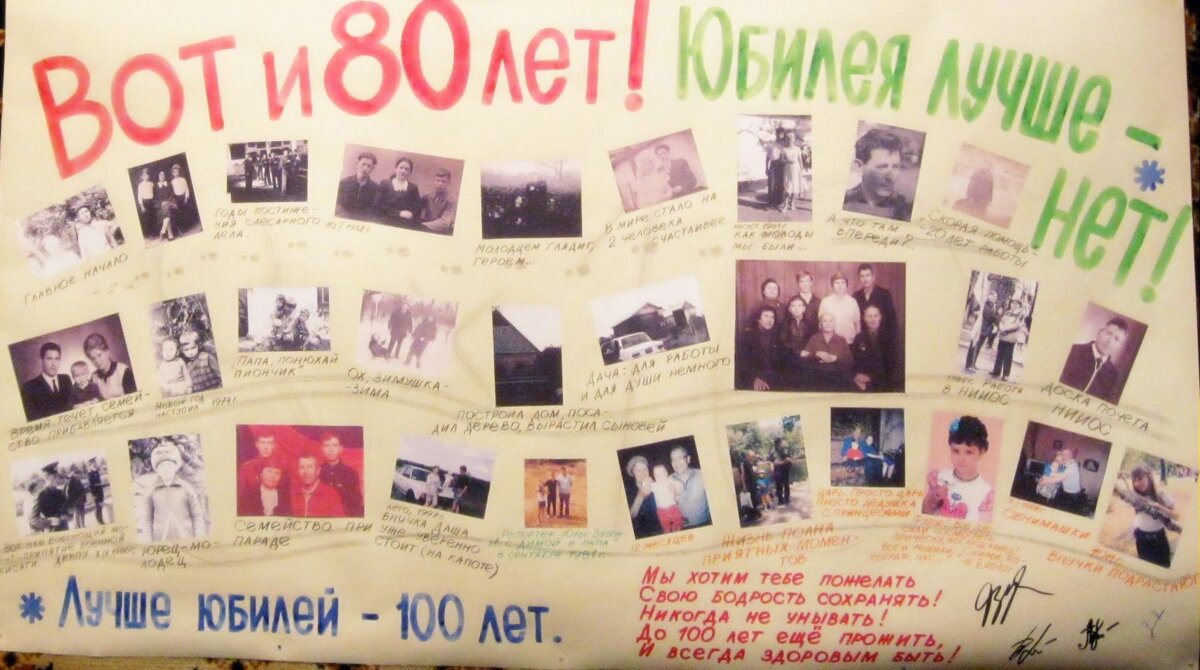 Вот и 80 лет! Юбилея лучше -
* нет!
Главное начало
Годы постиже-
ния слесарного
дела
Молодцем глядит,
героем...
В мире стало на
2 человека
счастливее
Как молоды
мы были...
А что там
впереди?..
"Скорая помощь" -
20 лет работы
Время течёт, семей-
ство прибавляется
Новый год
наступил 1974г.
"Папа, понюхай
пиончик"
Ох, зимушка-
зима
Построил дом, поса-
дил дерево, вырастил сыновей
Дача: для работы
и для души немного
Работа
в НИИОС
Доска почёта
НИИОС
Вот наш
Юрец-мо-
лодец
Семейство при
параде
Лето, 1997г.
Внучка Даша
уже уверенно
стоит (на
капоте)
с Димой и папа
в сентябре 1981г.
месяцев
Жизнь полна
приятных момен-
тов
Царь, просто царь
Просто дедушка
с принцессами
Обнимашки
Внучки подрастают
* Лучше юбилей - 100 лет.
Мы хотим тебе пожелать
Свою бодрость сохранять!
Никогда не унывать!
До 100 лет ещё прожить,
И всегда здоровым быть!